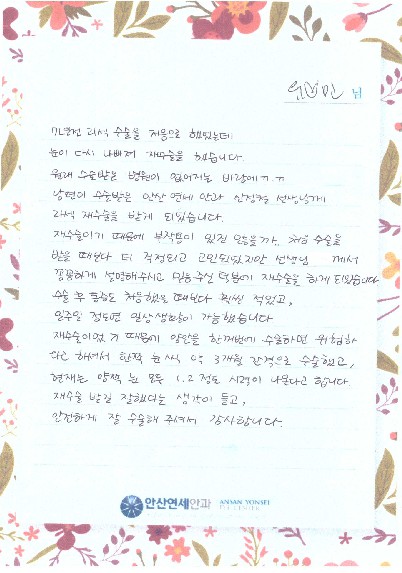 님
7년전 라식 수술을 처음으로 했었는데
눈이 다시 나빠져 재수술을 했습니다.
원래 수술받은 병원이 없어지는 바람에ㅠㅠ
남편이 수술받은 안산 연세 안과 선생님께
라식 재수술을 받게 되었습니다.
재수술이기 때문에 부작용이 있진 않을까, 처음 수술을
받을 때보다 더 걱정되고 고민되었지만 선생님 께서
꼼꼼하게 설명해주시고 믿음주신 덕분에 재수술을 하게 되었습니다
수술 후 통증도 처음했을 때보다 훨씬 적었고,
일주일 정도면 일상생활이 가능했습니다
재수술이었기 때문에 양안을 한꺼번에 수술하면 위험하
다고 하셔서 한쪽 눈씩 약 3개월 간격으로 수술했고,
현재는 양쪽 눈 모두 1.2 정도 시력이 나온다고 합니다.
재수술 받길 잘했다는 생각이 들고,
안전하게 잘 수술해 주셔서 감사합니다.
안산연세안과 ANSAN YONSEI
EYE CENTER